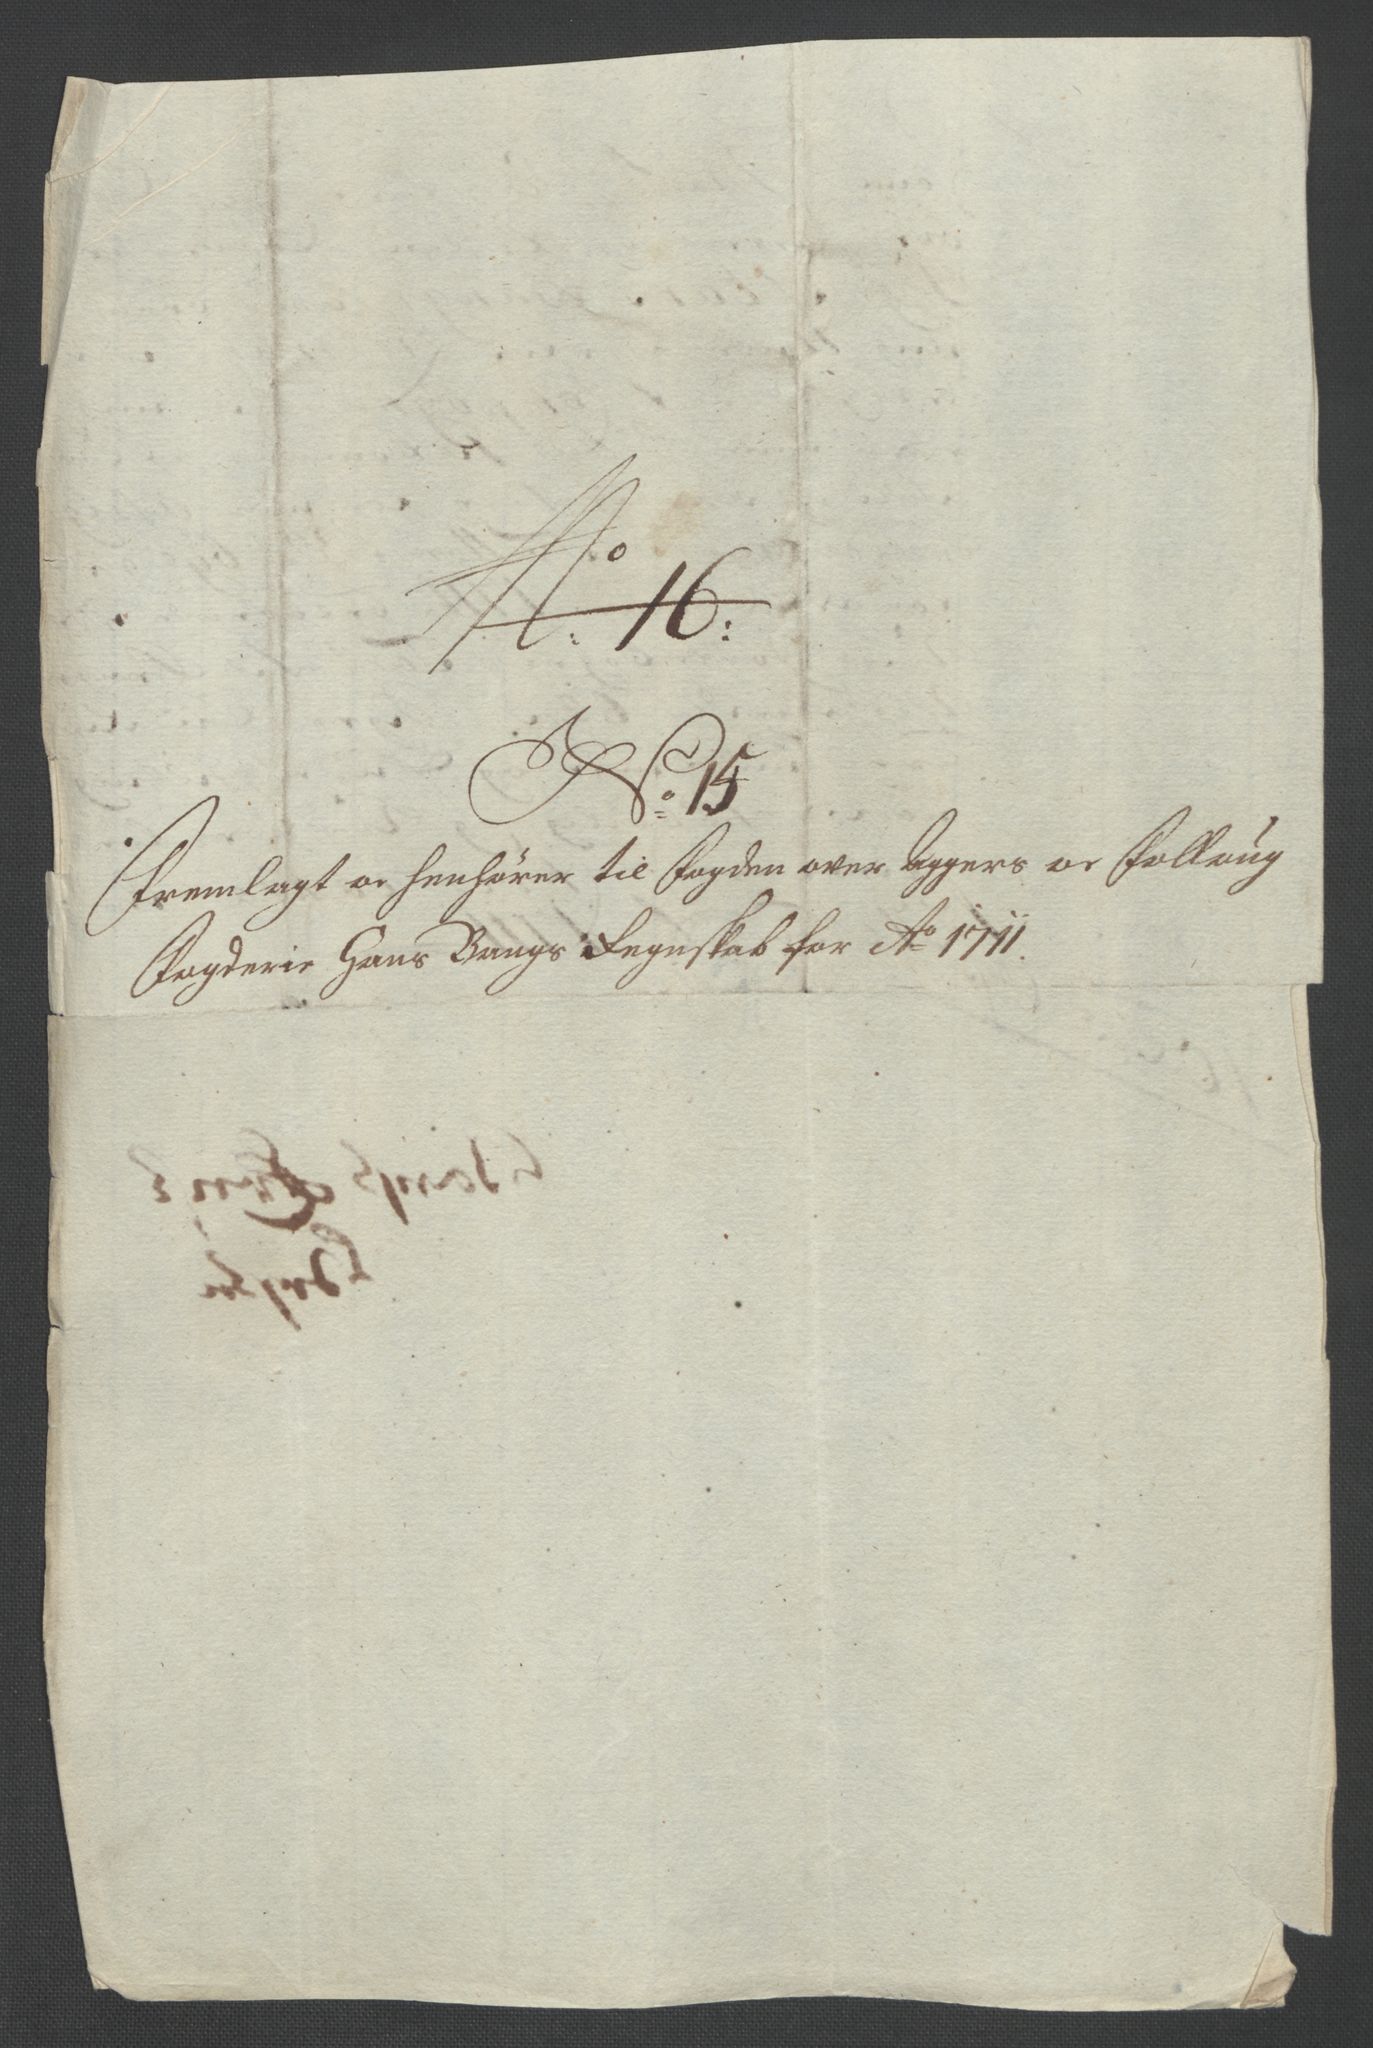 No. 16:
No. 15
Fremlagt oc henhörer til Fogden over Aggers oc Folloug
Fogderie Hans Bangs Regnskab for Ao 1711.